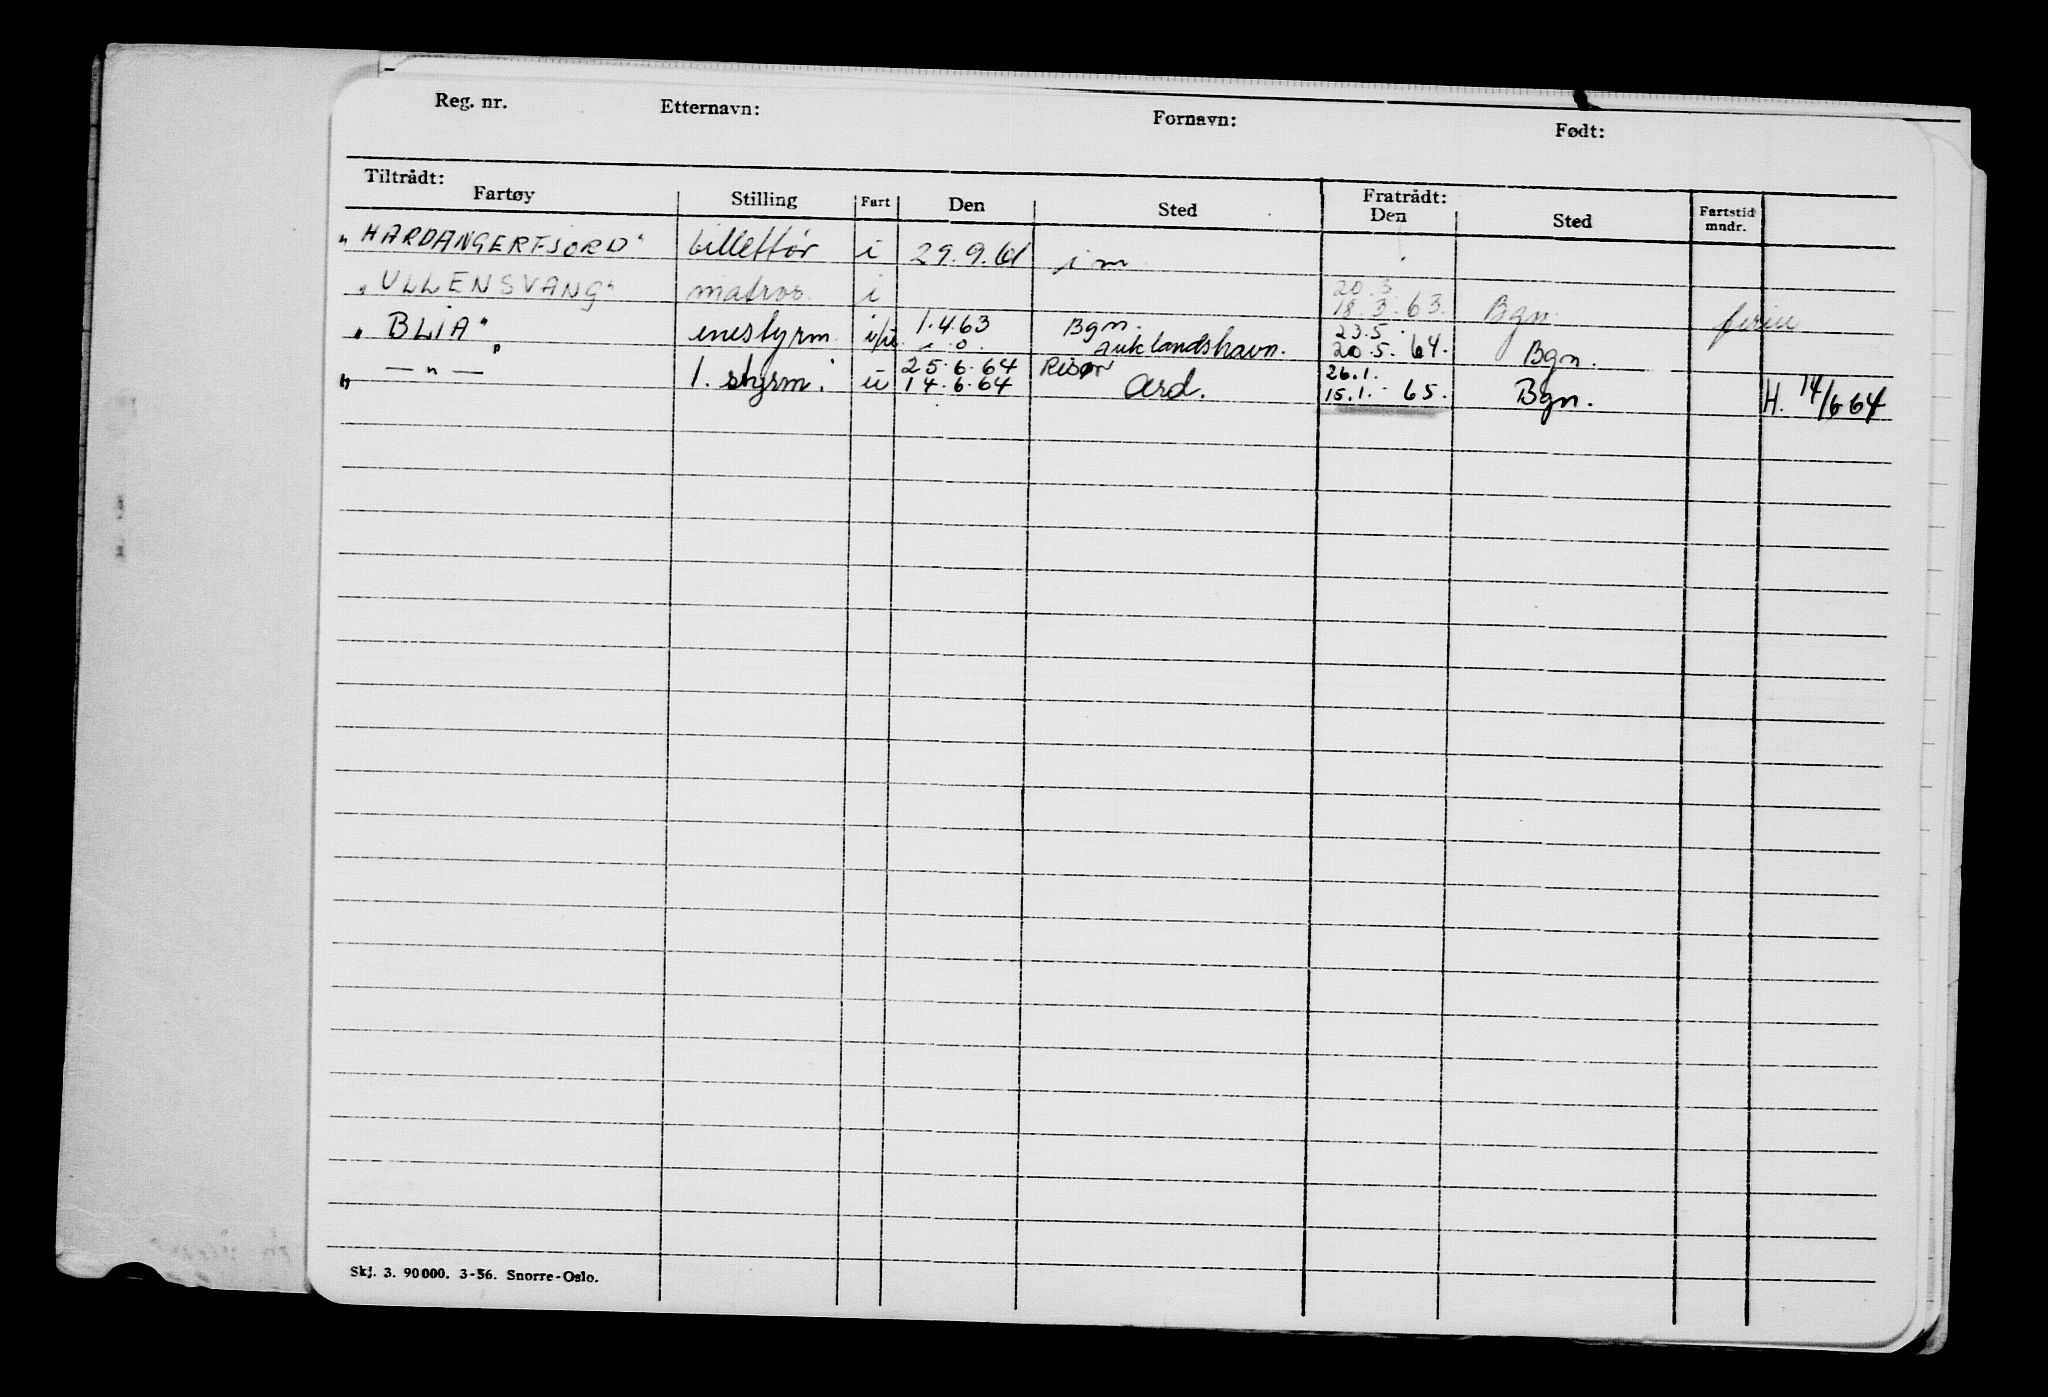 Reg. nr. Etternavn: Fornavn: Født:
Tiltrådt: Fratrådt:
Fartøy Stilling Fart Den Sted Den Sted Fartstid mndr.
"HARDANGERFJORD" billettør i 29.9.61 i m
"ULLENSVANG" matros. i 20.3. 18.3.63. Bgn. ferie
"BLIA" enestyrm. i/u. 1.4.63 Bgn. Auklandshavn. 23.5. 20.5.64. Bgn.
— " — 1. styrm. u 25.6.64 14.6.64 Risør Ard. 26.1. 15.1. 65. Bgn. H. 14/6 64
Skj. 3. 90000. 3-56. Snorre-Oslo.